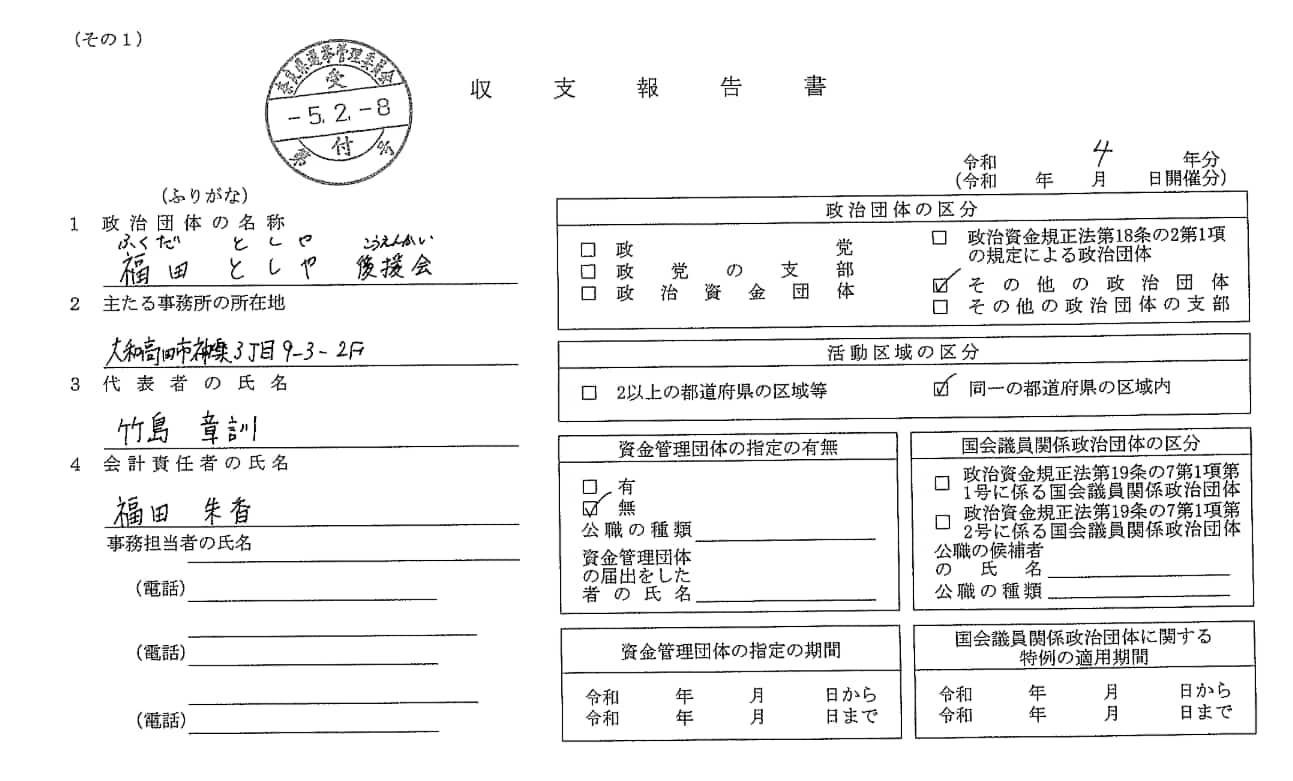 (その1)
奈良県選挙管理委員会
受
-5.2.-8
付
第 号
収支報告書
令和 4 年分
(令和 年 月 日開催分)
(ふりがな)
1 政治団体の名称
ふくだ としや こうえんかい
福田 としや 後援会
2 主たる事務所の所在地
大和高田市神楽3丁目9-3-2F
3 代表者の氏名
竹島 章訓
4 会計責任者の氏名
福田 朱香
事務担当者の氏名
(電話)
(電話)
(電話)
政治団体の区分
□ 政党
□ 政党の支部
□ 政治資金団体
□ 政治資金規正法第18条の2第1項
の規定による政治団体
☑ その他の政治団体
□ その他の政治団体の支部
活動区域の区分
□ 2以上の都道府県の区域等
☑ 同一の都道府県の区域内
資金管理団体の指定の有無
□ 有
☑ 無
公職の種類
資金管理団体
の届出をした
者の氏名
国会議員関係政治団体の区分
□ 政治資金規正法第19条の7第1項第
1号に係る国会議員関係政治団体
□ 政治資金規正法第19条の7第1項第
2号に係る国会議員関係政治団体
公職の候補者
の氏名
公職の種類
資金管理団体の指定の期間
令和 年 月 日から
令和 年 月 日まで
国会議員関係政治団体に関する
特例の適用期間
令和 年 月 日から
令和 年 月 日まで